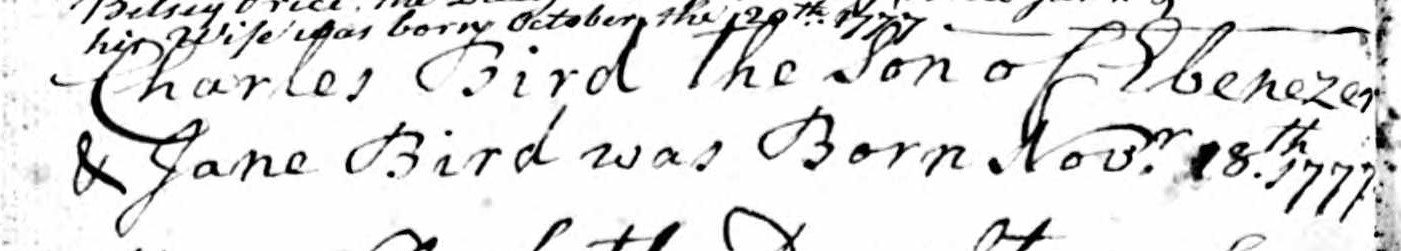 Betsey Price the
his Wife was born October the 20th 1777
Charles Bird the Son of Ebenezer
& Jane Bird was Born Novr. 18th. 1777